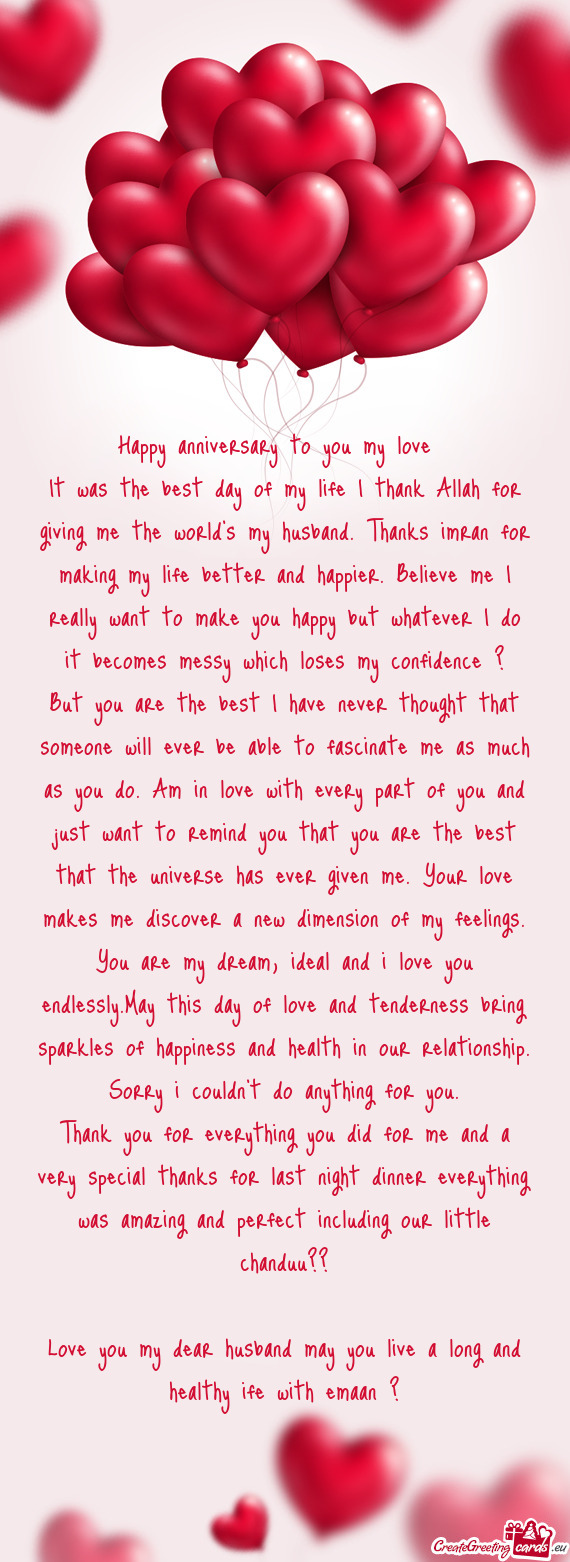 Happy anniversary to you my love
It was the best day of my life I thank Allah for
giving me the world's my husband. Thanks imran for
making my life better and happier. Believe me I
really want to make you happy but whatever I do
it becomes messy which loses my confidence ?
But you are the best I have never thought that
someone will ever be able to fascinate me as much
as you do. Am in love with every part of you and
just want to remind you that you are the best
that the universe has ever given me. Your love
makes me discover a new dimension of my feelings.
You are my dream, ideal and i love you
endlessly.May this day of love and tenderness bring
sparkles of happiness and health in our relationship.
Sorry i couldn't do anything for you.
Thank you for everything you did for me and a
very special thanks for last night dinner everything
was amazing and perfect including our little
chanduu??
Love you my dear husband may you live a long and
healthy ife with emaan ?
CreateGreetingcards.eu